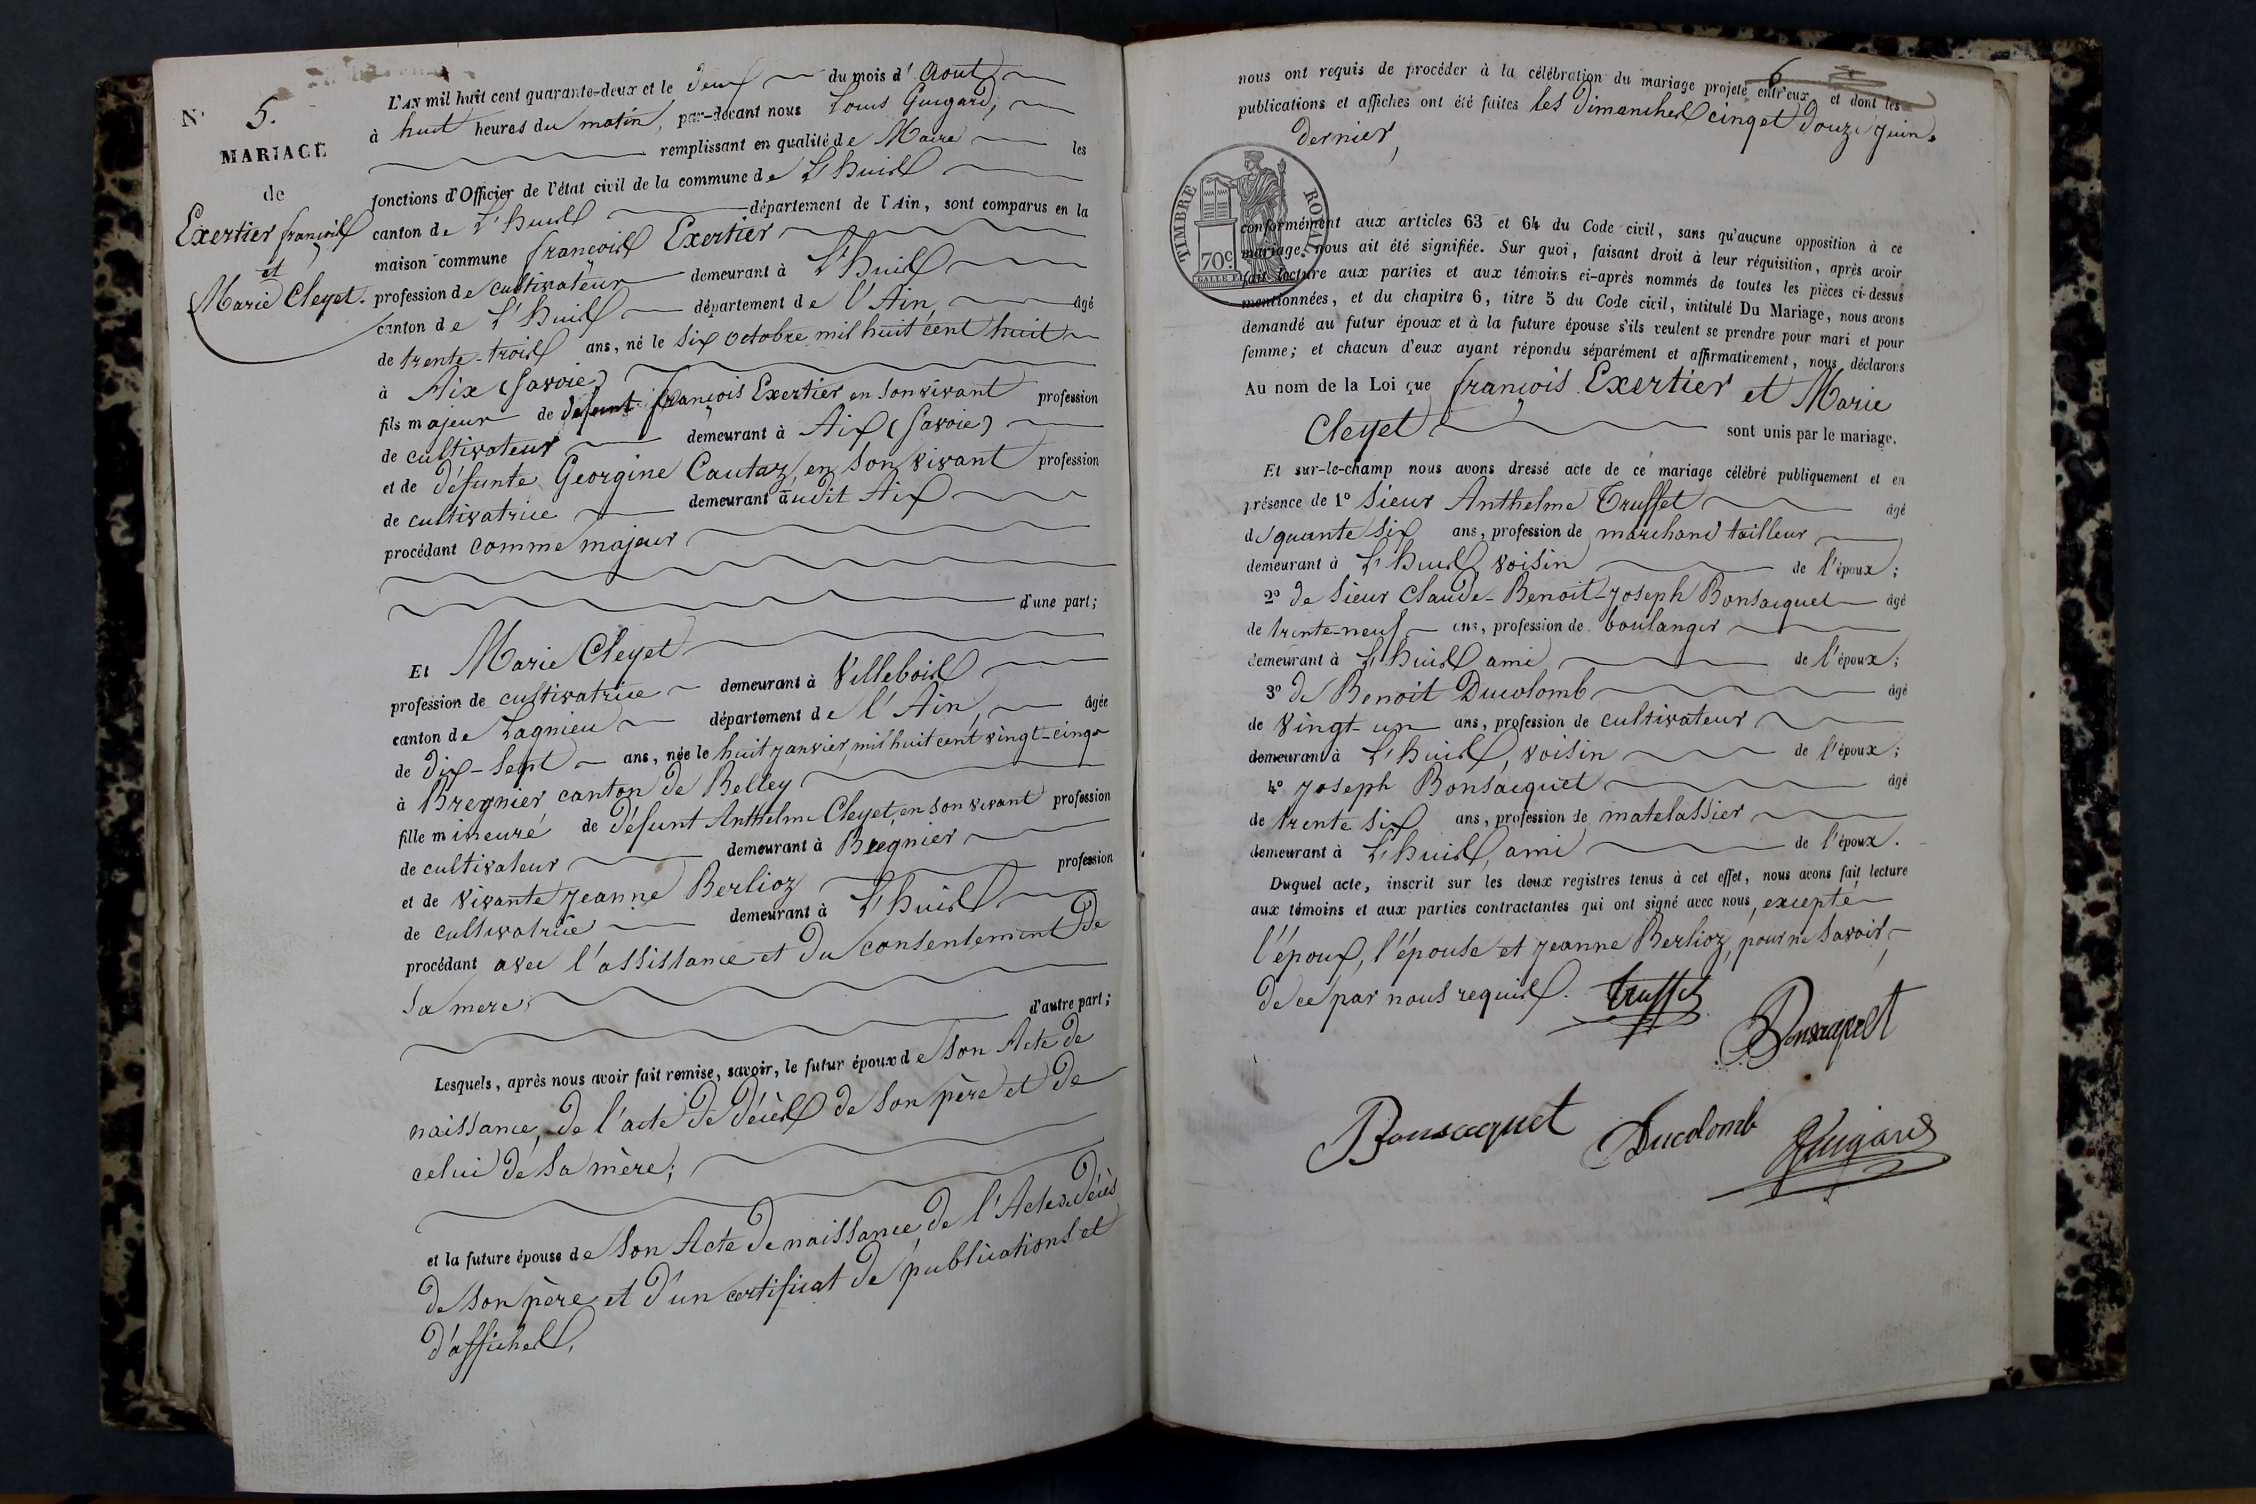 N° 5.
MARIAGE
de
Exertier françois
et
Marie Cleyet.
L'AN mil huit cent quarante-deux et le deux du mois d'Aout
à huit heures du matin, par-devant nous Louis Guigard,
remplissant en qualité de Maire les
fonctions d'Officier de l'état civil de la commune de L'huis
canton de L'huis département de l'Ain, sont comparus en la
maison commune françois Exertier
profession de cultivateur demeurant à L'huis
canton de L'huis département de l'Ain, âgé
de trente-trois ans, né le six octobre mil huit cent huit
à Aix (Savoie)
fils majeur de défunt françois Exertier en son vivant profession
de cultivateur demeurant à Aix (Savoie)
et de défunte Georgine Cautaz, en son vivant profession
de cultivatrice demeurant audit Aix
procédant comme majeur
d'une part;
Et Marie Cleyet
profession de cultivatrice demeurant à Villebois
canton de Lagnieu département de l'Ain, âgée
de dix-sept ans, née le huit janvier mil huit cent vingt-cinq
à Bregnier canton de Belley
fille mineure de défunt Anthelme Cleyet, en son vivant profession
de cultivateur demeurant à Bregnier
et de vivante jeanne Berlioz profession
de cultivatrice demeurant à L'huis
procédant avec l'assistance et du consentement de
sa mere;
d'autre part;
Lesquels, après nous avoir fait remise, savoir, le futur époux de son Acte de
naissance, de l'acte de décès de son père et de
celui de sa mère;
et la future épouse de son Acte de naissance, de l'Acte de décès
de son père et d'un certificat de publications et
d'affiches,
6
nous ont requis de procéder à la célébration du mariage projeté entr'eux, et dont les
publications et affiches ont été faites les dimanches cinq et douze juin
dernier,
TIMBRE ROYAL
70c
conformément aux articles 63 et 64 du Code civil, sans qu'aucune opposition à ce
mariage nous ait été signifiée. Sur quoi, faisant droit à leur réquisition, après avoir
fait lecture aux parties et aux témoins ci-après nommés de toutes les pièces ci-dessus
mentionnées, et du chapitre 6, titre 5 du Code civil, intitulé Du Mariage, nous avons
demandé au futur époux et à la future épouse s'ils veulent se prendre pour mari et pour
femme; et chacun d'eux ayant répondu séparément et affirmativement, nous déclarons
Au nom de la Loi que françois Exertier et Marie
Cleyet sont unis par le mariage.
Et sur-le-champ nous avons dressé acte de ce mariage célébré publiquement et en
présence de 1° sieur Anthelme Truffet âgé
de quarante six ans, profession de marchand tailleur
demeurant à L'huis, voisin de l'époux;
2° de sieur Claude-Benoit-joseph Bonsacquet âgé
de trente-neuf ans, profession de boulanger
demeurant à L'huis ami de l'époux;
3° de Benoit Ducolomb âgé
de vingt-un ans, profession de cultivateur
demeurant à L'huis, voisin de l'époux;
4° joseph Bonsacquet âgé
de trente six ans, profession de matelassier
demeurant à L'huis, ami de l'époux.
Duquel acte, inscrit sur les deux registres tenus à cet effet, nous avons fait lecture
aux témoins et aux parties contractantes qui ont signé avec nous, excepté
l'époux, l'épouse et jeanne Berlioz, pour ne savoir,
de ce par nous requis. Truffet
Bonsacquet
Bonsacquet Ducolomb Guigard